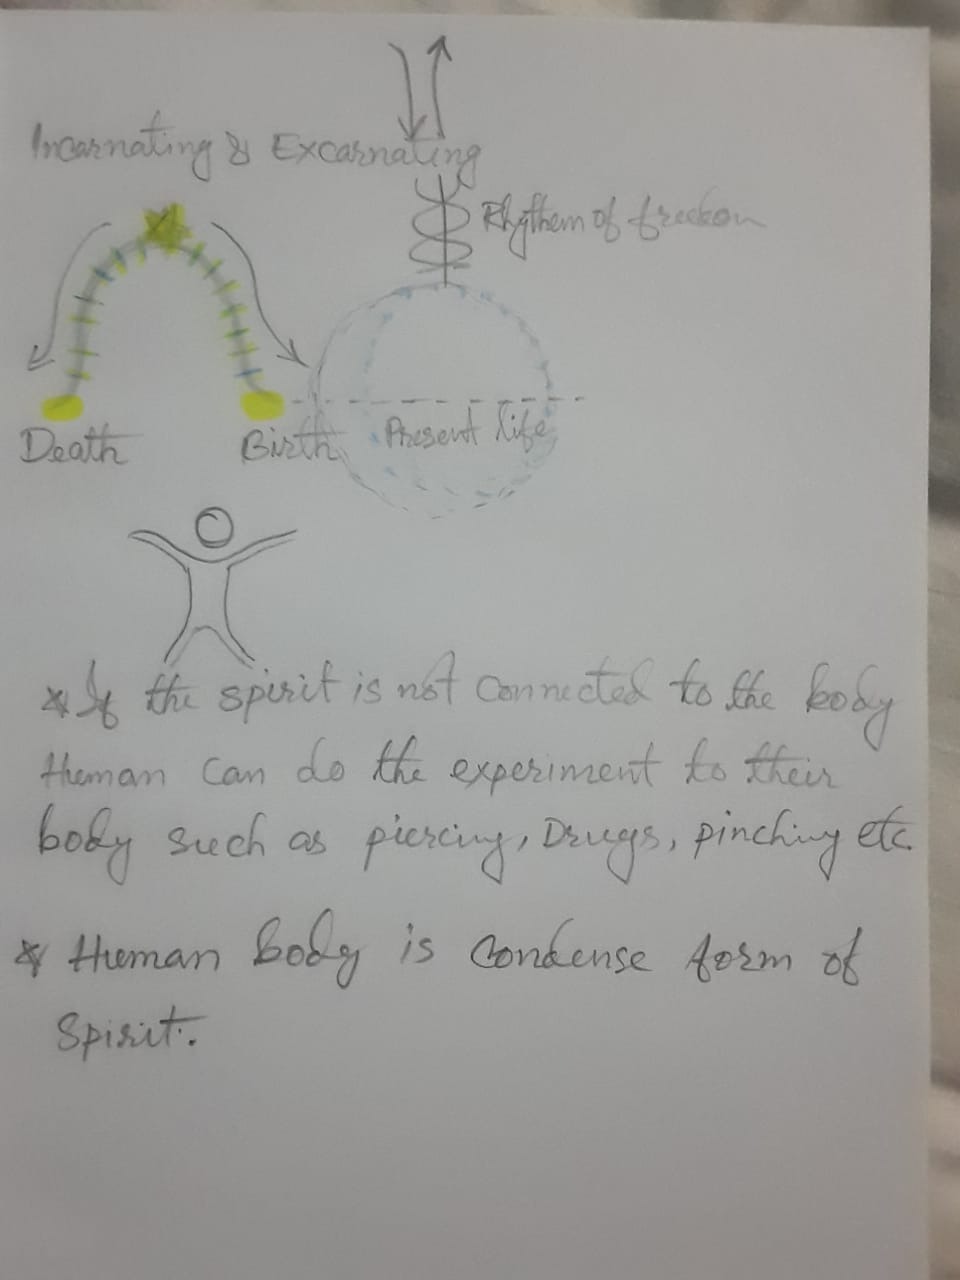 Incarnating & Excarnating
Rhythem of freedom
Death
Birth
Present life
* If the spirit is not connected to the body
Human can do the experiment to their
body such as piercing, Drugs, pinching etc.
* Human body is Condense form of
Spirit.